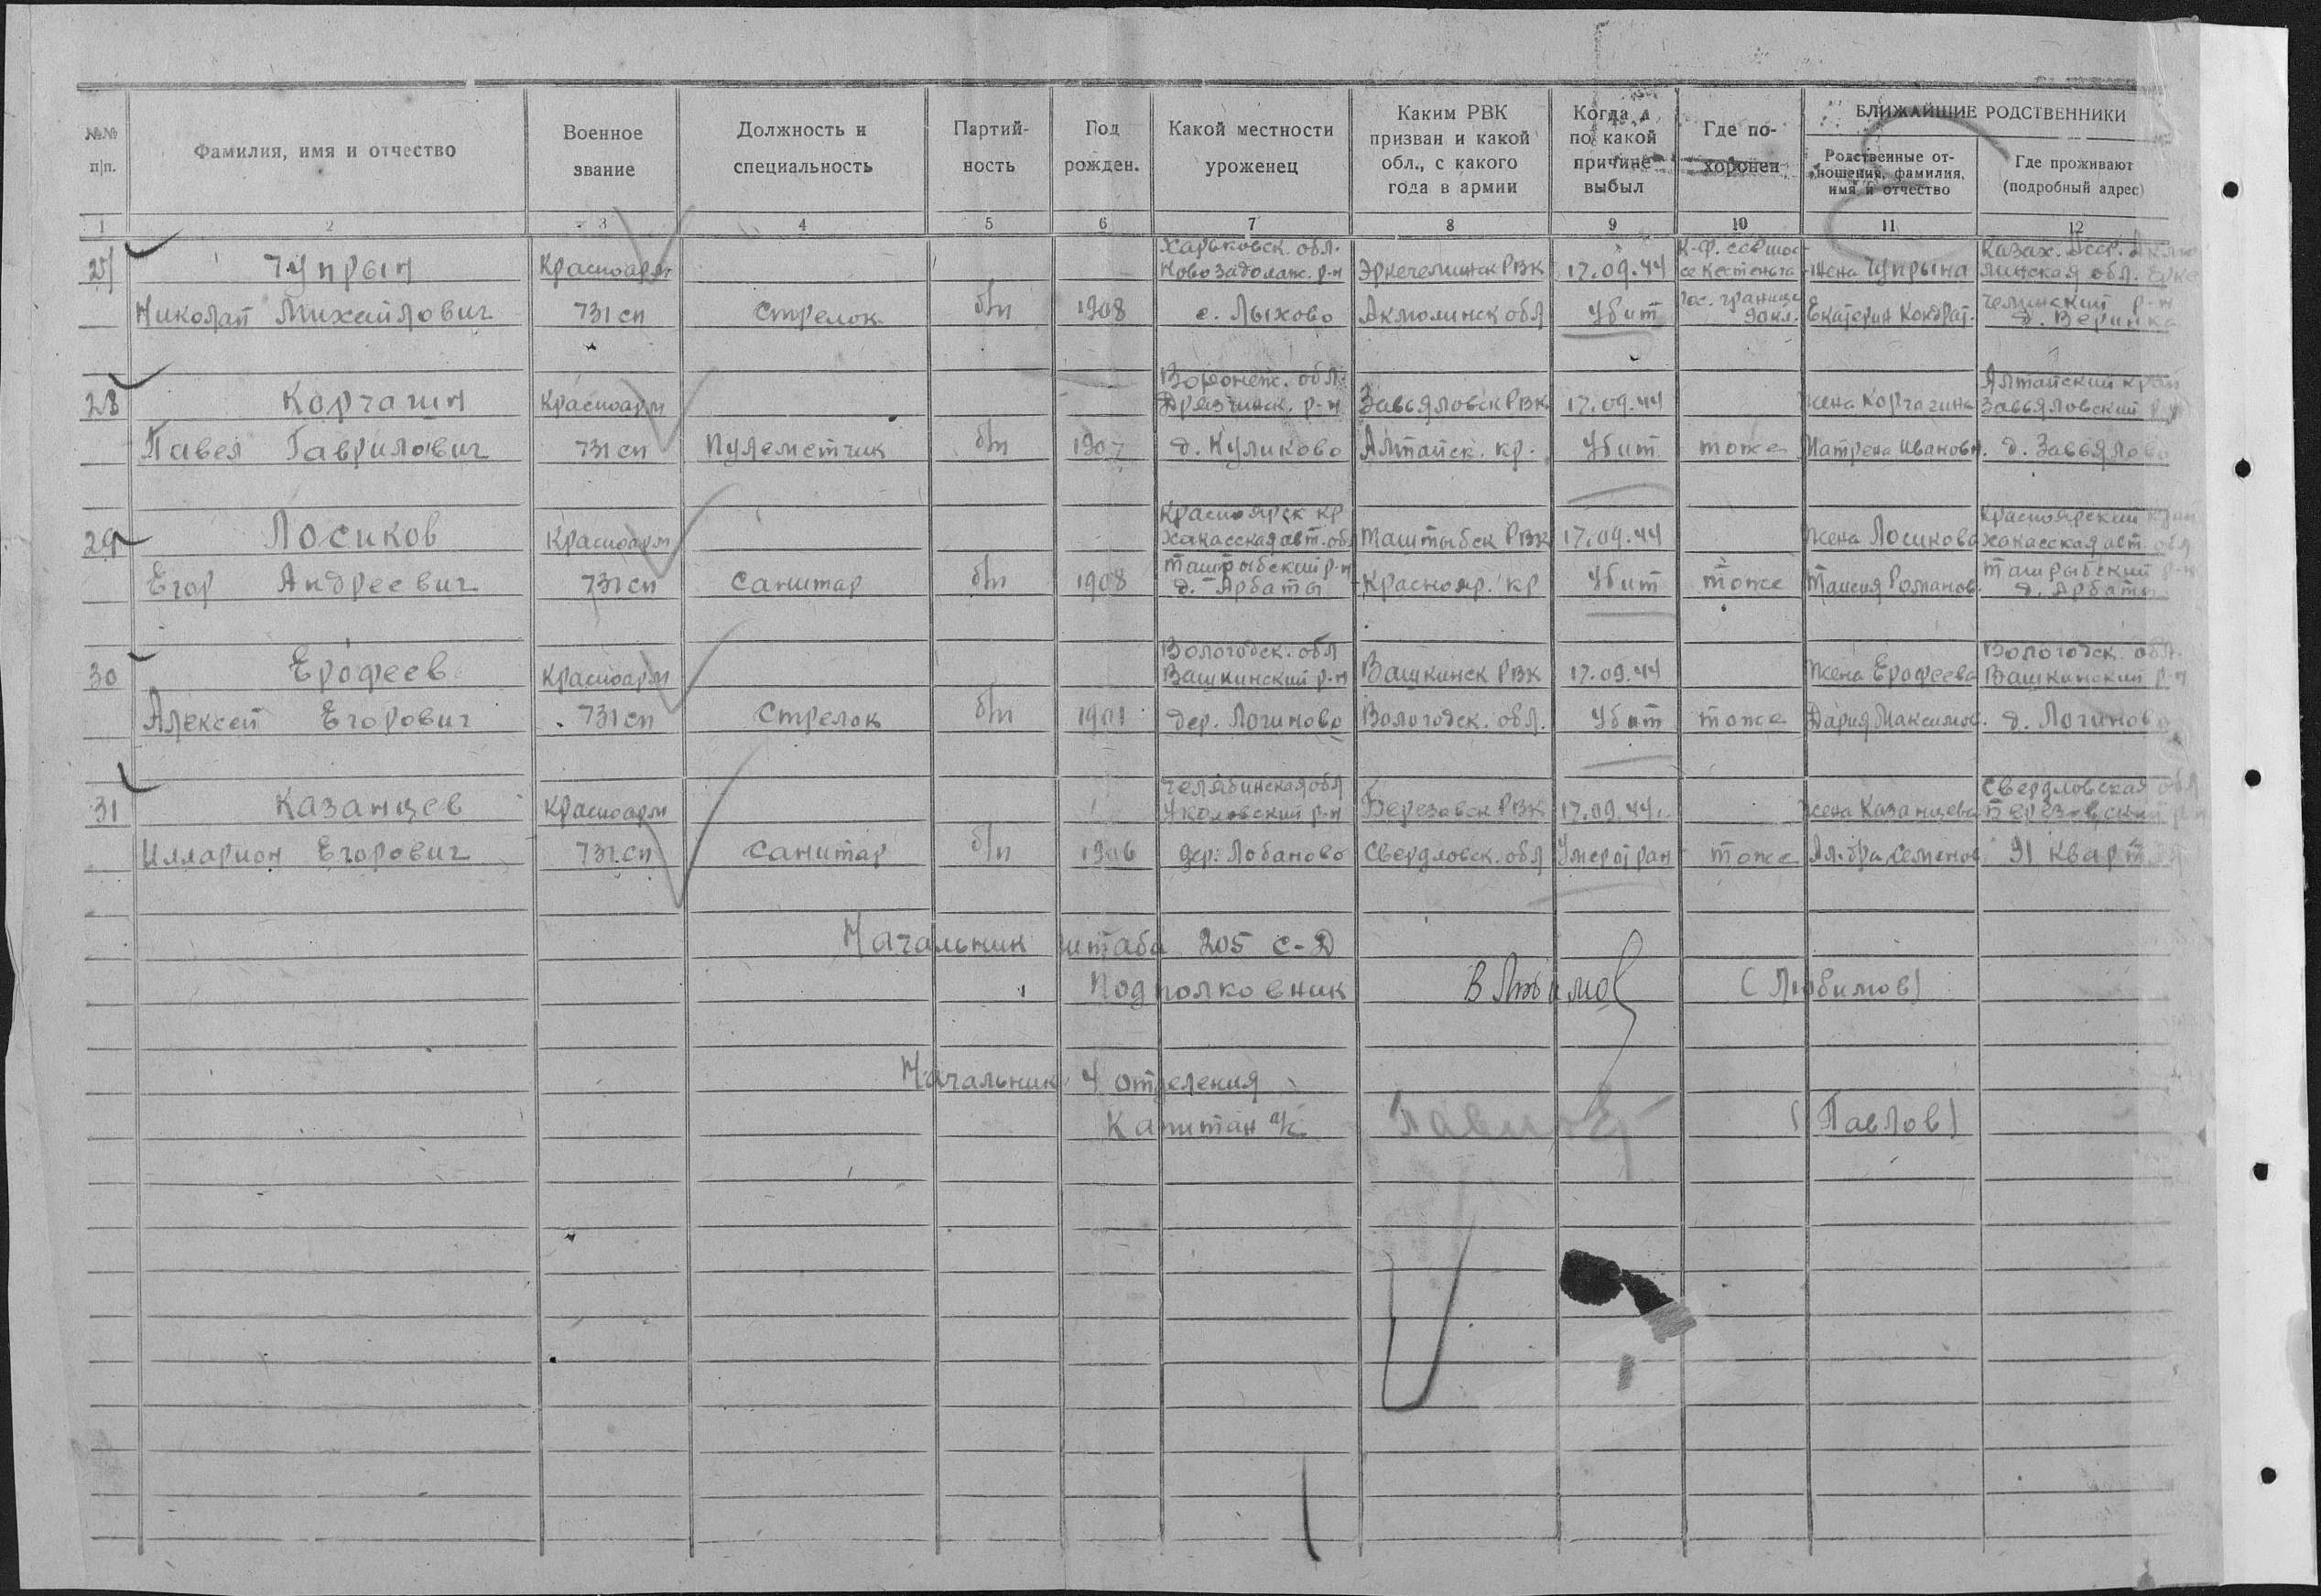 №№ п|п.
Фамилия, имя и отчество
Военное звание
Должность и специальность
Партий-ность
Год рожден.
Какой местности уроженец
Каким РВК призван и какой обл., с какого года в армии
Когда и по какой причине выбыл
Где по-хоронен
БЛИЖАЙШИЕ РОДСТВЕННИКИ
Родственные от-ношения, фамилия, имя и отчество
Где проживают (подробный адрес)
1 2 3 4 5 6 7 8 9 10 11 12
Харьковск. обл. К-ф. ССР шос- Казах. Сср.
27 Чупрын Красноарм Ново Задолаж. р-н Эркечелинск РВК 17.09.44 се Кестеньга жена Чупрына линская обл.
Николай Михайлович 731 сп Стрелок б/п 1908 с. Лыхово Акмолинск обл Убит Гос. граница Екатерин Кондрат. челинский р-н
д.
Воронеж. обл. Алтайский край
28 Корчагин Красноарм р-н Завьяловск РВК 17.09.44 жена Корчагина Завьяловский р-н
Павел Гаврилович 731 сп Пулеметчик б/п 1907 д. Куликово Алтайск. кр. Убит тоже Матрена Ивановн. д. Завьялово
Красноярск кр Красноярский край
29 Лосиков Красноарм Хакасская авт. обл Таштыбск РВК 17.09.44 жена Лосикова Хакасская авт. обл
Таштыбский р-н Таштыбский р-н
Егор Андреевич 731 сп Санитар б/п 1908 д. Арбаты Краснояр. кр Убит тоже Таисия Романов. д. Арбаты
Вологодск. обл Вологодск. обл.
30 Ерофеев Красноарм Вашкинский р-н Вашкинск РВК 17.09.44 жена Ерофеева Вашкинский р-н
Алексей Егорович 731 сп Стрелок б/п 1901 дер. Логиново Вологодск. обл. Убит тоже Дария Максимов. д. Логиново
Челябинская обл Свердловская обл
31 Казанцев Красноарм р-н Березовск РВК 17.09.44. жена Казанцева Березовский р-н
Илларион Егорович 731 сп Санитар б/п 1906 дер. Лобаново Свердловск. обл Умер от ран тоже Ал-дра Семенов. 91 квартал
Начальник штаба 205 С-Д
Подполковник В Любимов (Любимов)
Начальник 4 отделения
Капитан а/с Павлов (Павлов)